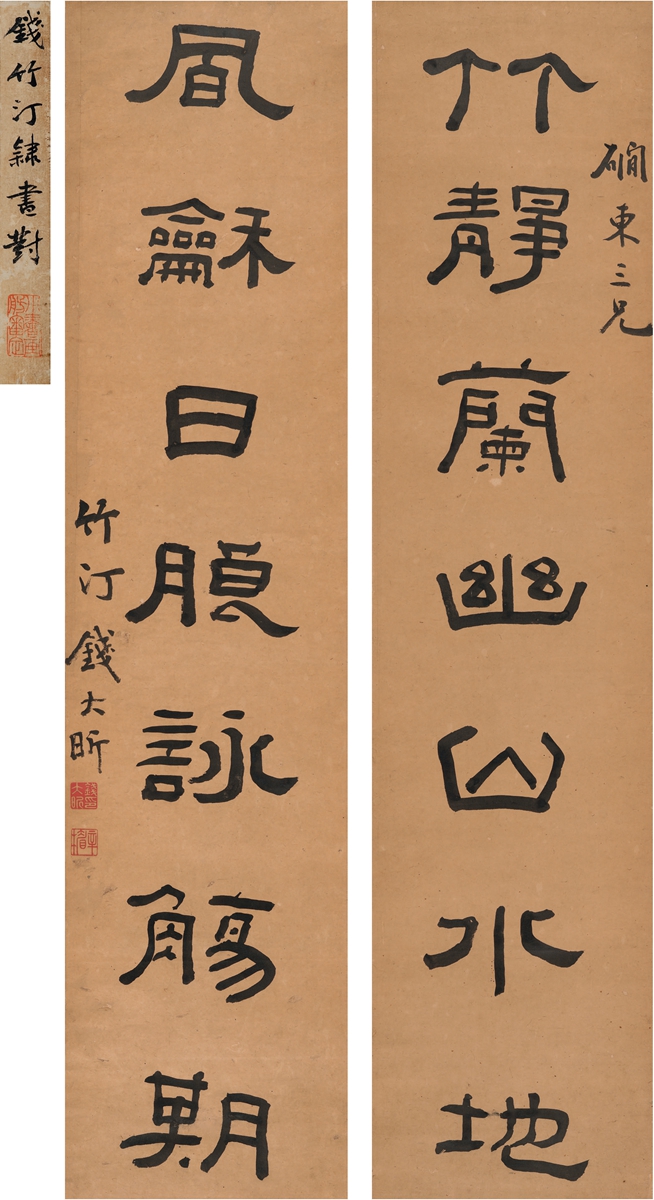 磵東三兄
竹靜蘭幽山水地
風龢日朖詠觴期
竹汀錢大昕
錢竹汀隸書對